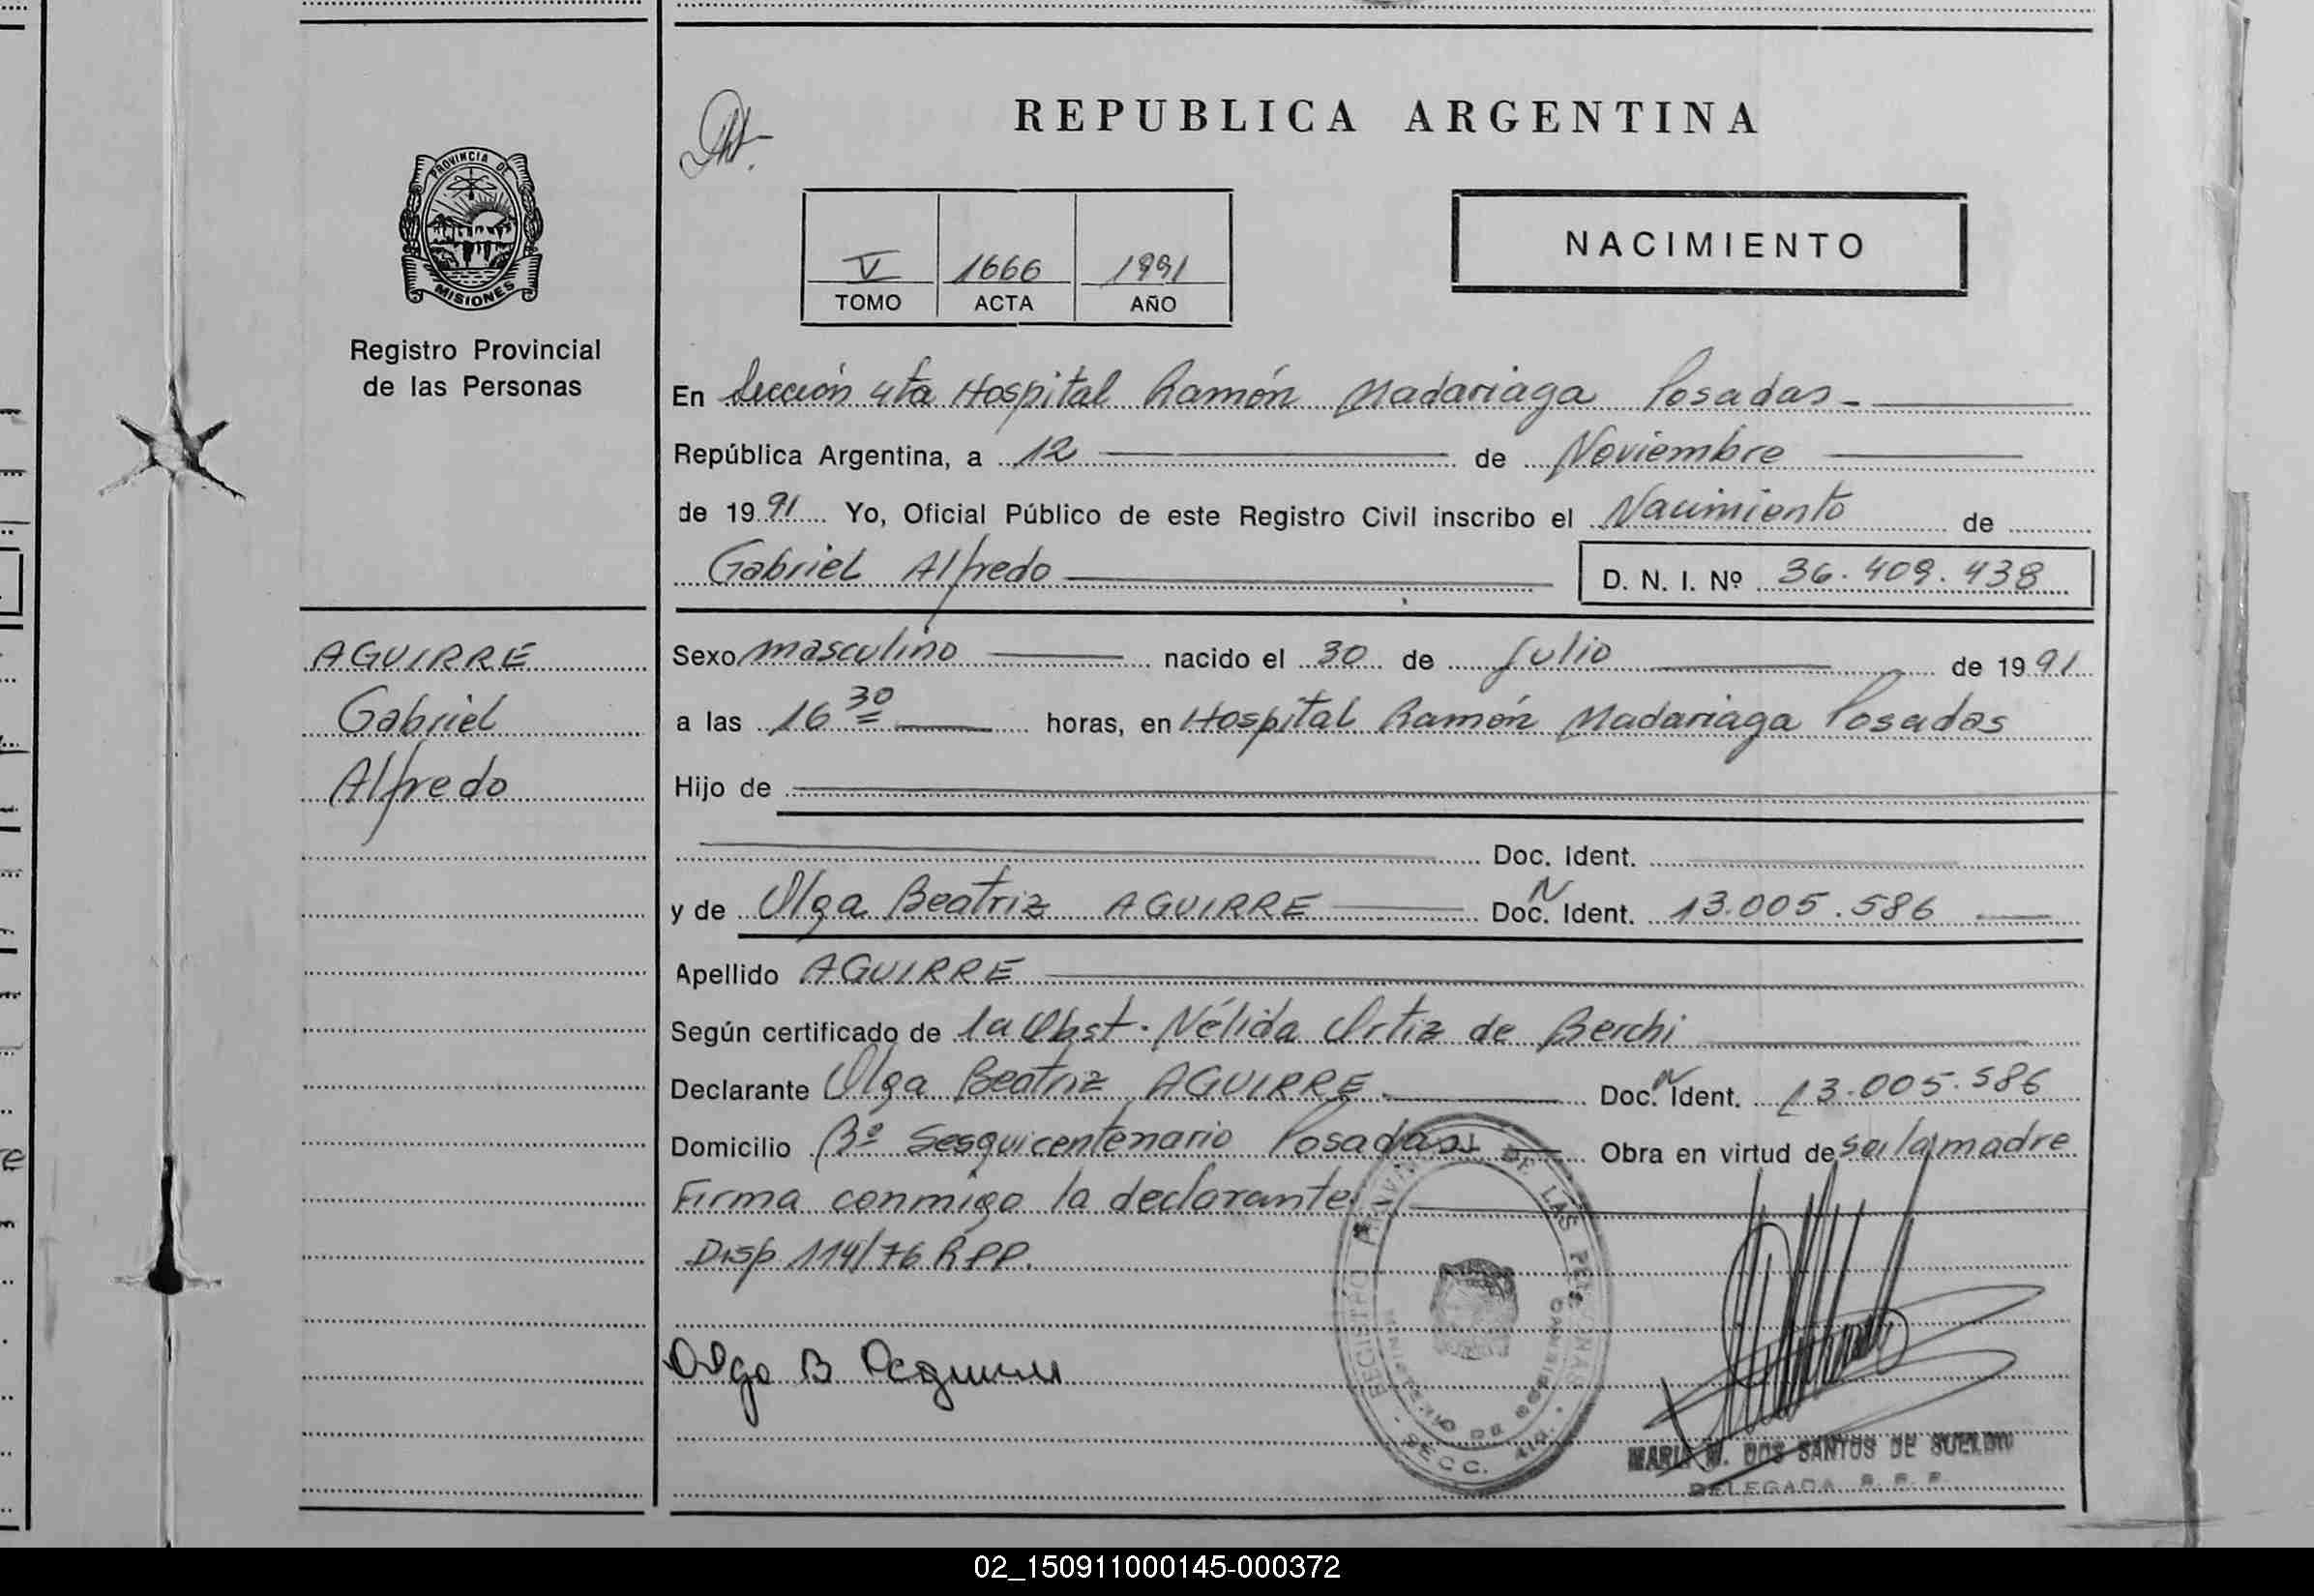 REPUBLICA ARGENTINA
PROVINCIA DE
MISIONES
Registro Provincial
de las Personas
V 1666 1991
TOMO ACTA AÑO
NACIMIENTO
En Sección 4ta Hospital Ramón Madariaga Posadas-
República Argentina, a 12 de Noviembre
de 1991 Yo, Oficial Público de este Registro Civil inscribo el Nacimiento de
Gabriel Alfredo D. N. I. Nº 36.409.438
AGUIRRE
Gabriel
Alfredo
Sexo masculino nacido el 30 de Julio de 1991
a las 16 30 horas, en Hospital Ramón Madariaga Posadas
Hijo de
Doc. Ident.
y de Olga Beatriz AGUIRRE Doc. N Ident. 13.005.586
Apellido AGUIRRE
Según certificado de la Obst. Nélida Ortiz de Berchi
Declarante Olga Beatriz AGUIRRE. Doc. N Ident. 13.005.586
Domicilio Bº Sesquicentenario Posadas Obra en virtud de ser la madre
Firma conmigo la declarante
Disp. 114/76 RPP.
Olga B Aguirre
REGISTRO PROVINCIAL DE LAS PERSONAS
MINISTERIO DE GOBIERNO
SECC. 4ta.
MARIA M. DOS SANTOS DE
DELEGADA R. P. P.
02_150911000145-000372